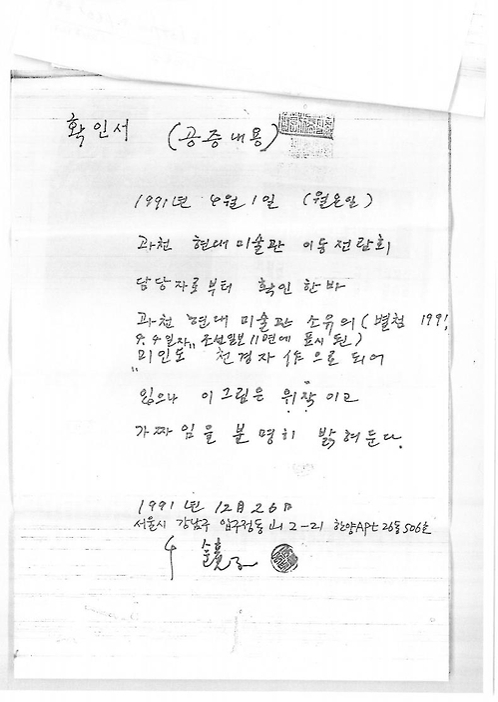 확인서 (공증내용)
1991년 4월 1일 (월요일)
과천 현대 미술관 이동전람회
담당자로부터 확인한바
과천 현대 미술관 소유의 (별첨 1991.
9.4일자 조선일보 11면에 표시된)
"미인도" 천경자 作으로 되어
있으나 이그림은 위작 이고
가짜임을 분명히 밝혀둔다.
1991년 12月 26日
서울시 강남구 압구정동 山 2-21 한양Apt 26동 506호